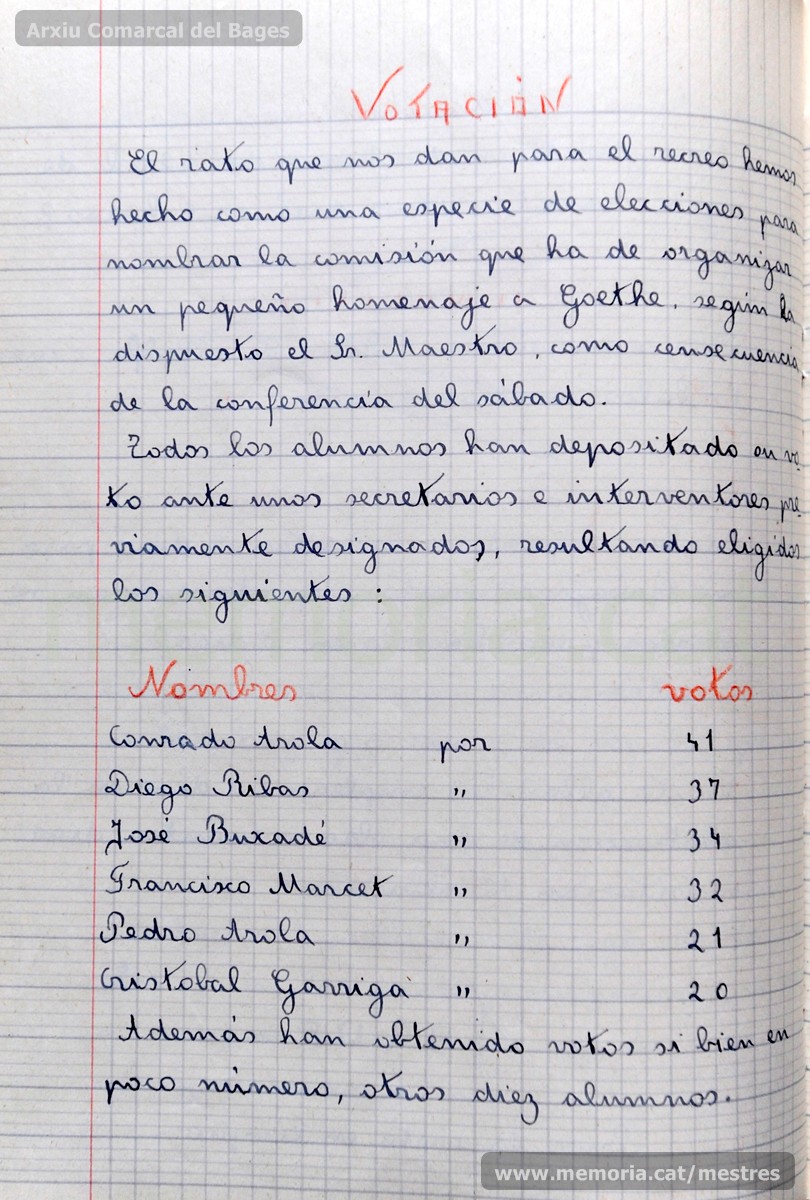 Arxiu Comarcal del Bages
VOTACIÓN
El rato que nos dan para el recreo hemos
hecho como una especie de elecciones para
nombrar la comisión que ha de organizar
un pequeño homenaje a Goethe, según ha
dispuesto el Sr. Maestro, como consecuencia
de la conferencia del sábado.
Todos los alumnos han depositado su vo-
to ante unos secretarios e interventores pre-
viamente designados, resultando eligidos
los siguientes:
Nombres votos
Conrado Arola por 41
Diego Ribas " 37
José Buxadé " 34
Francisco Marcet " 32
Pedro Arola " 21
Cristobal Garriga " 20
Además han obtenido votos si bien en
poco número, otros diez alumnos.
memoria.cat
www.memoria.cat/mestres